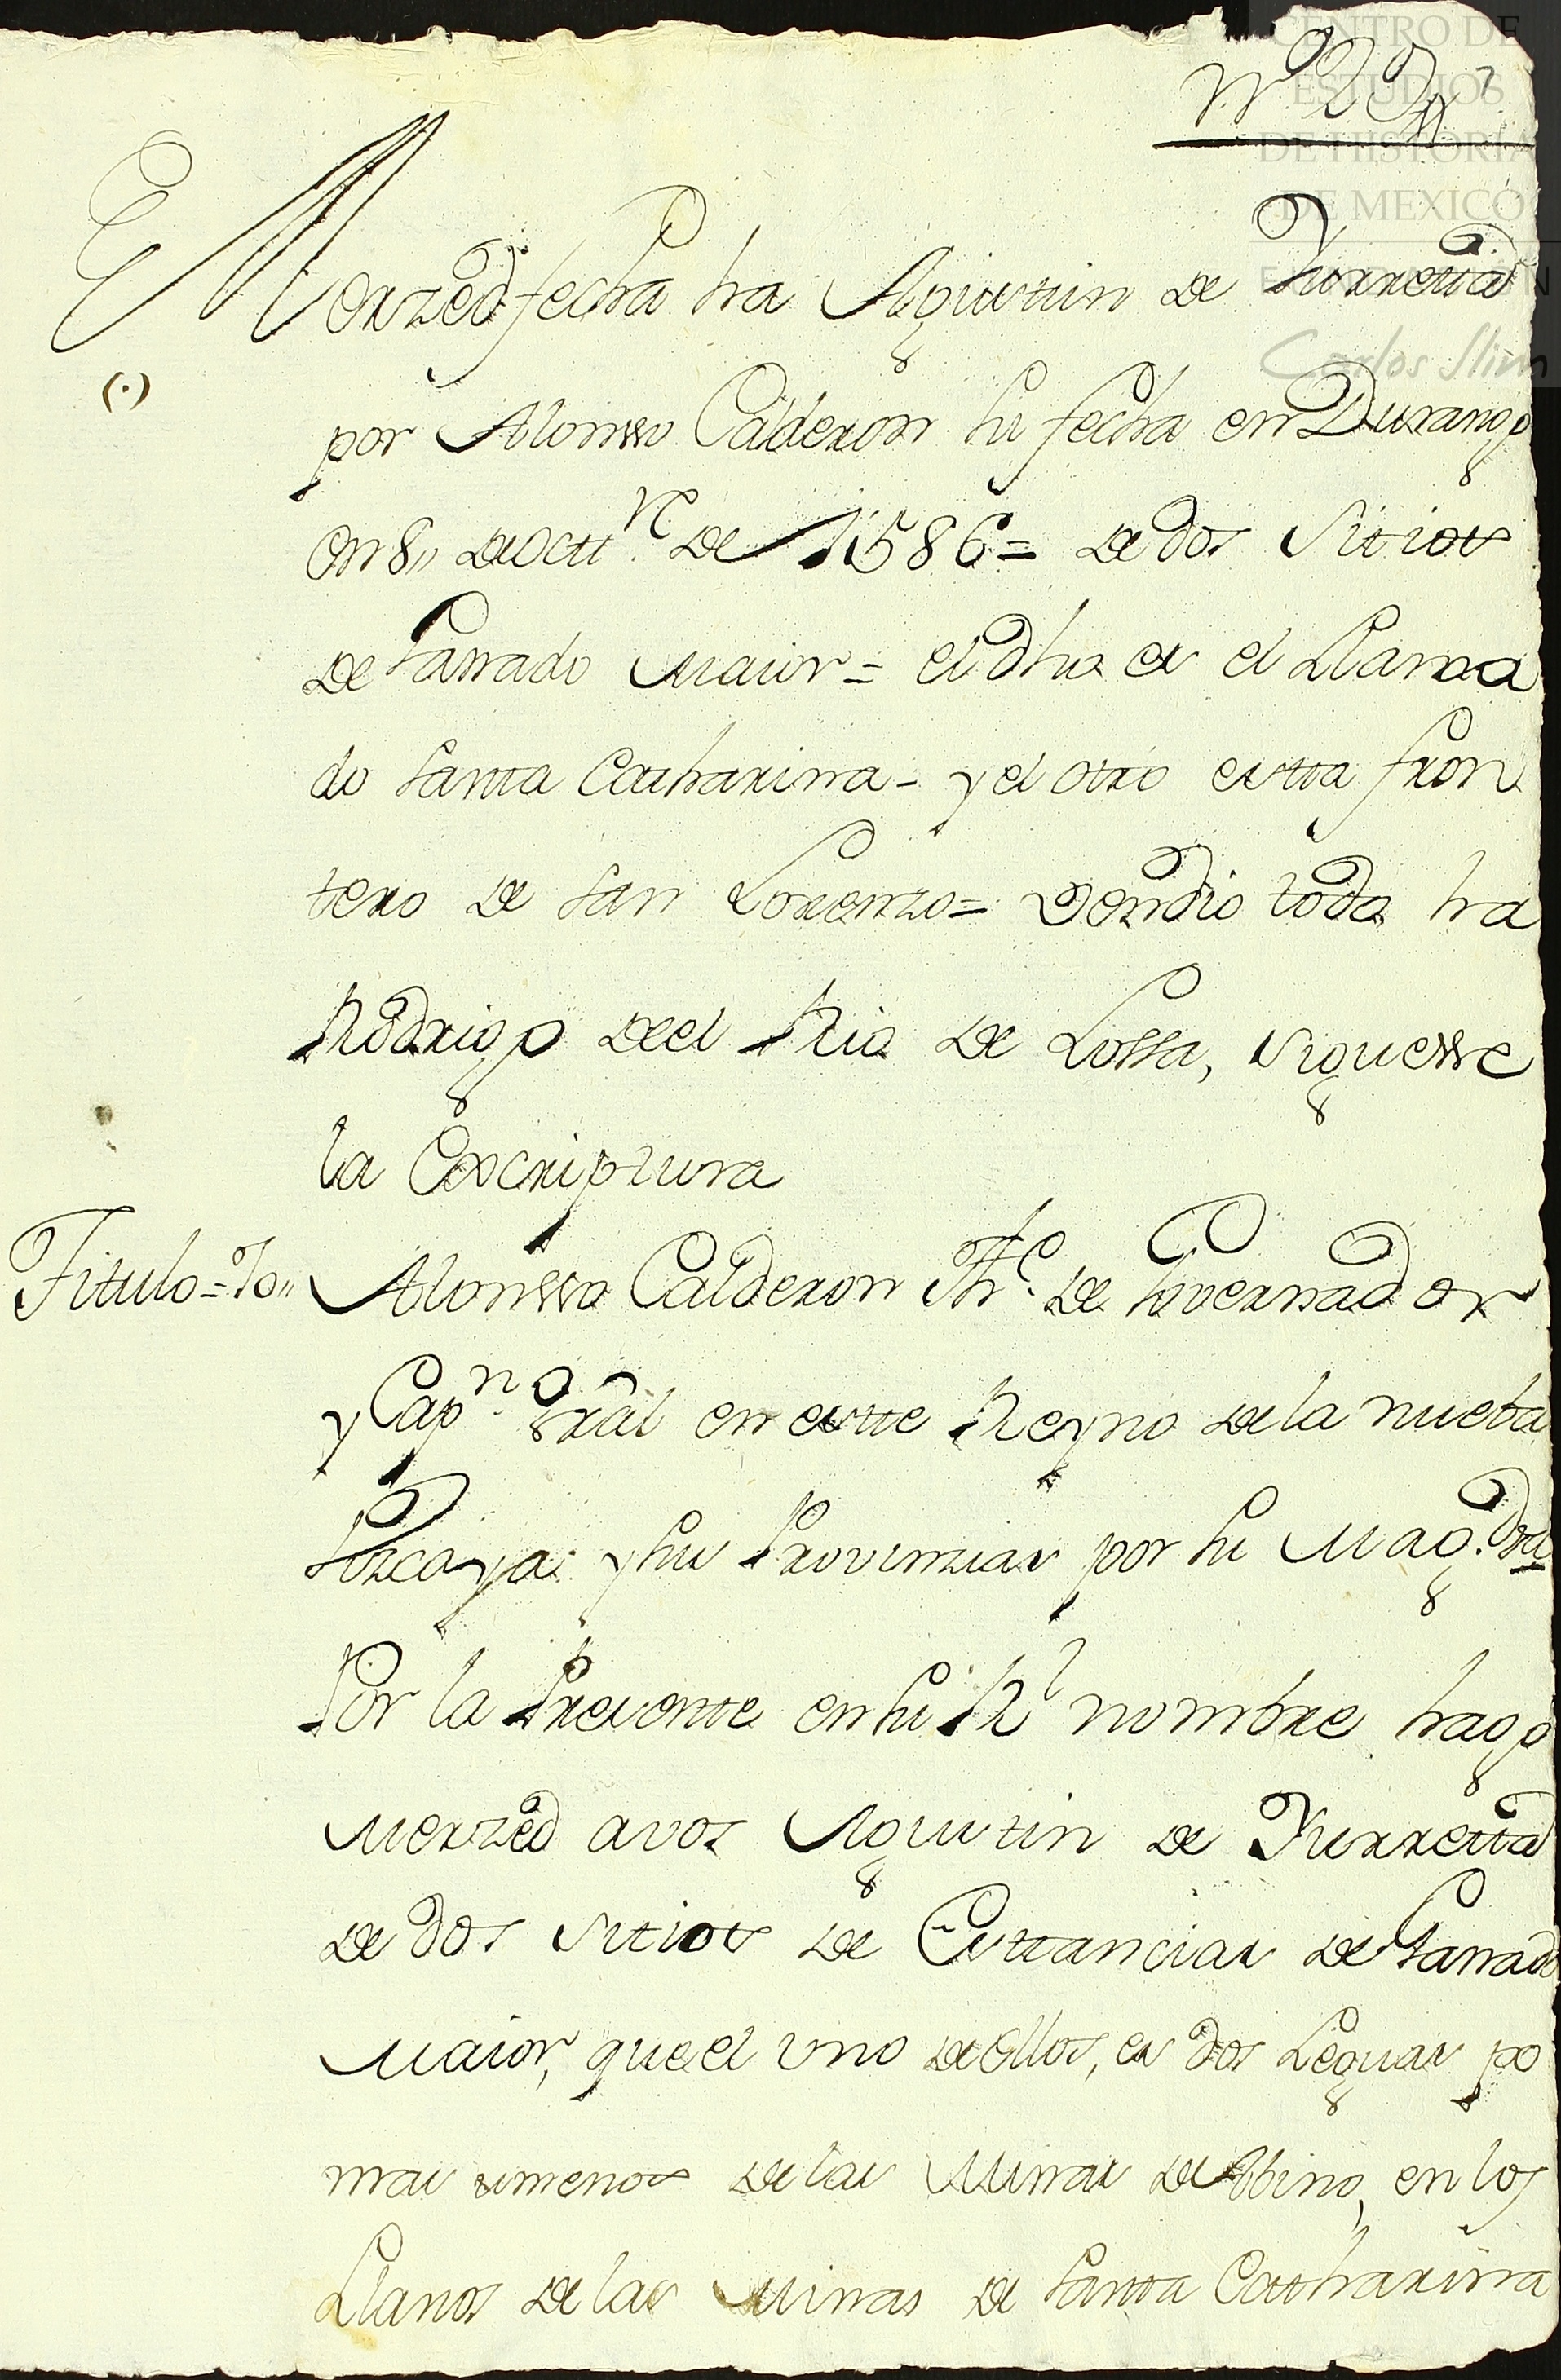 CENTRO DE
ESTUDIOS
DE HISTORIA
DE MEXICO
Carlos Slim
Nº 29 7
Merzed fecha ha Agustin de Yurretta
por Alonsso Calderon su fecha en Durango
en 8,, de Octtre. de 1586= de dos Sitios
de Ganado maior= el dho es el Llama
do Santa Catharina- y el otro estta fron
tero de San Lorenzo= Vendio todo ha
Rodrigo del Rio de Lossa, siguesse
la Escriptura
Titulo= Yo,, Alonsso Calderon The. de Governador
y Capn. Gral en estte Reyno de la nueba
Viscaya y sus Provinzias por su Magd.
Por la Presentte en su Rl nombre hago
merzed a vos Agustin de Yurretta
de dos sitios de Esttancias de Ganado
maior, que el uno de ellos, es dos Leguas po
mas umenos de las Minas de Abino, en los
Llanos de las Minas de Santta Catharina